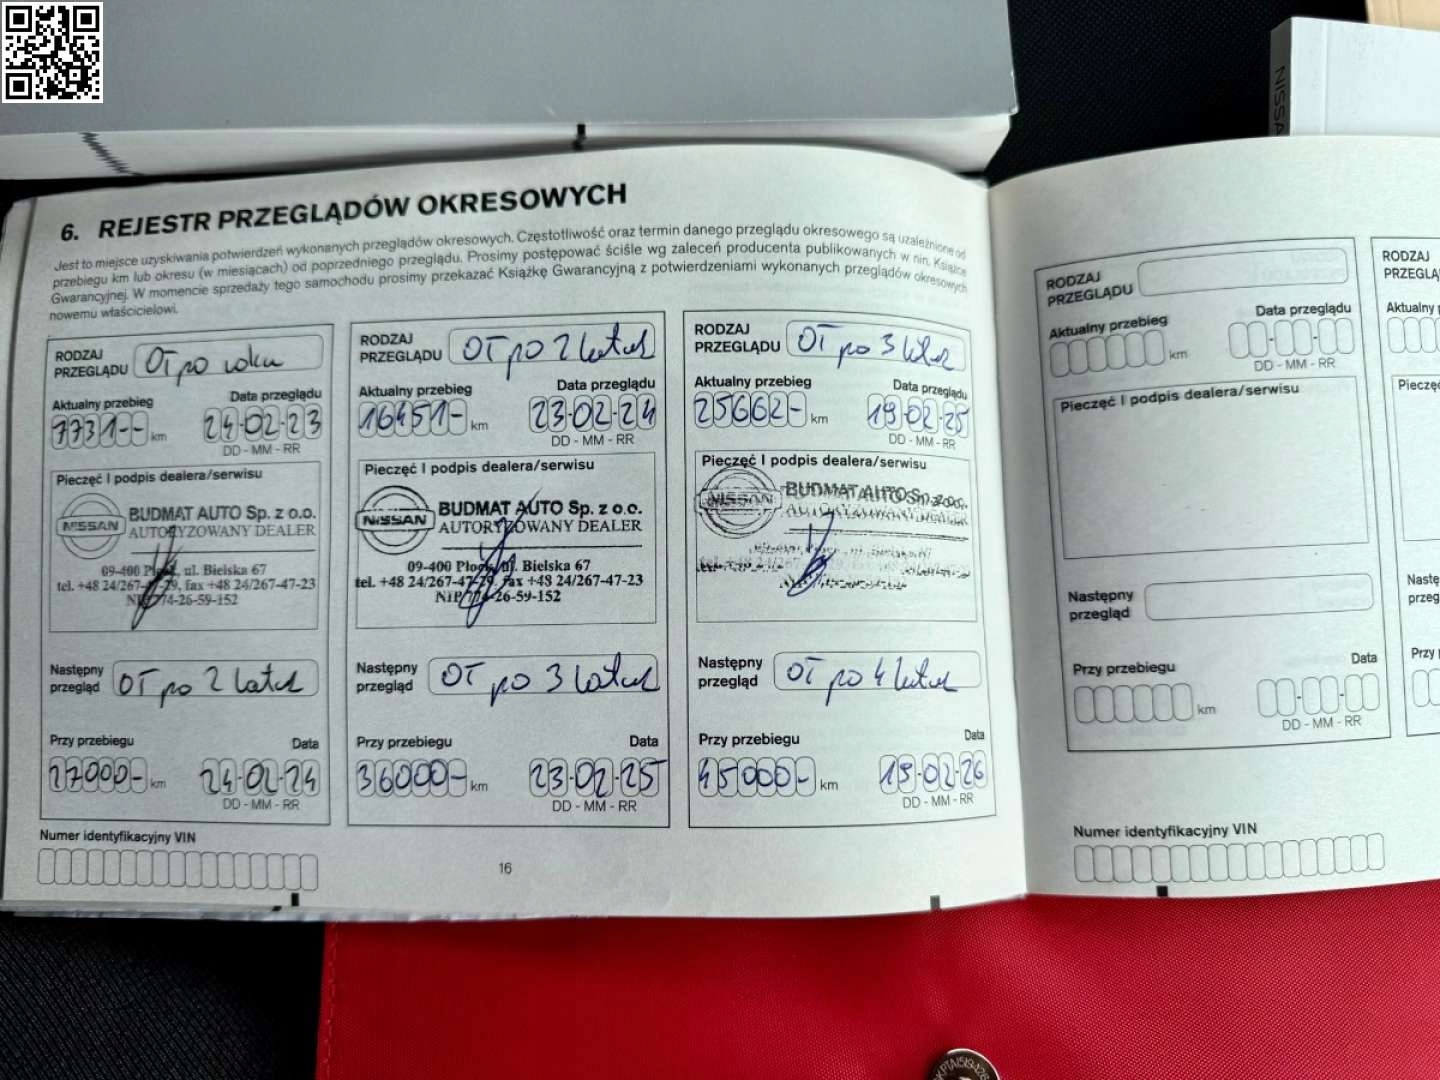 NISSA
6. REJESTR PRZEGLĄDÓW OKRESOWYCH
Jest to miejsce uzyskiwania potwierdzeń wykonanych przeglądów okresowych. Częstotliwość oraz termin danego przeglądu okresowego są uzależnione od
przebiegu km lub okresu (w miesiącach) od poprzedniego przeglądu. Prosimy postępować ściśle wg zaleceń producenta publikowanych w nin. Książce
Gwarancyjnej. W momencie sprzedaży tego samochodu prosimy przekazać Książkę Gwarancyjną z potwierdzeniami wykonanych przeglądów okresowych
nowemu właścicielowi.
RODZAJ
PRZEGLĄDU OT po roku
Aktualny przebieg Data przeglądu
7731-- km 24-02-23
DD - MM - RR
Pieczęć I podpis dealera/serwisu
NISSAN BUDMAT AUTO Sp. z o.o.
AUTORYZOWANY DEALER
09-400 Płock, ul. Bielska 67
tel. +48 24/267-47-29, fax +48 24/267-47-23
NIP 774-26-59-152
Następny
przegląd OT po 2 latach
Przy przebiegu Data
27000- km 24-02-24
DD - MM - RR
Numer identyfikacyjny VIN
RODZAJ
PRZEGLĄDU OT po 2 latach
Aktualny przebieg Data przeglądu
16451- km 23-02-24
DD - MM - RR
Pieczęć I podpis dealera/serwisu
NISSAN BUDMAT AUTO Sp. z o.o.
AUTORYZOWANY DEALER
09-400 Płock, ul. Bielska 67
tel. +48 24/267-47-29, fax +48 24/267-47-23
NIP 774-26-59-152
Następny
przegląd OT po 3 latach
Przy przebiegu Data
36000- km 23-02-25
DD - MM - RR
RODZAJ
PRZEGLĄDU OT po 3 latach
Aktualny przebieg Data przeglądu
25662- km 19-02-25
DD - MM - RR
Pieczęć I podpis dealera/serwisu
NISSAN BUDMAT AUTO Sp. z o.o.
AUTORYZOWANY DEALER
Następny
przegląd OT po 4 latach
Przy przebiegu Data
45000- km 19-02-26
DD - MM - RR
16
RODZAJ
PRZEGLĄDU
Aktualny przebieg Data przeglądu
km
DD - MM - RR
Pieczęć I podpis dealera/serwisu
Następny
przegląd
Przy przebiegu Data
km
DD - MM - RR
Numer identyfikacyjny VIN
RODZAJ
PRZEGLĄ
Aktualny
Pieczęć
Nastę
przeg
Przy